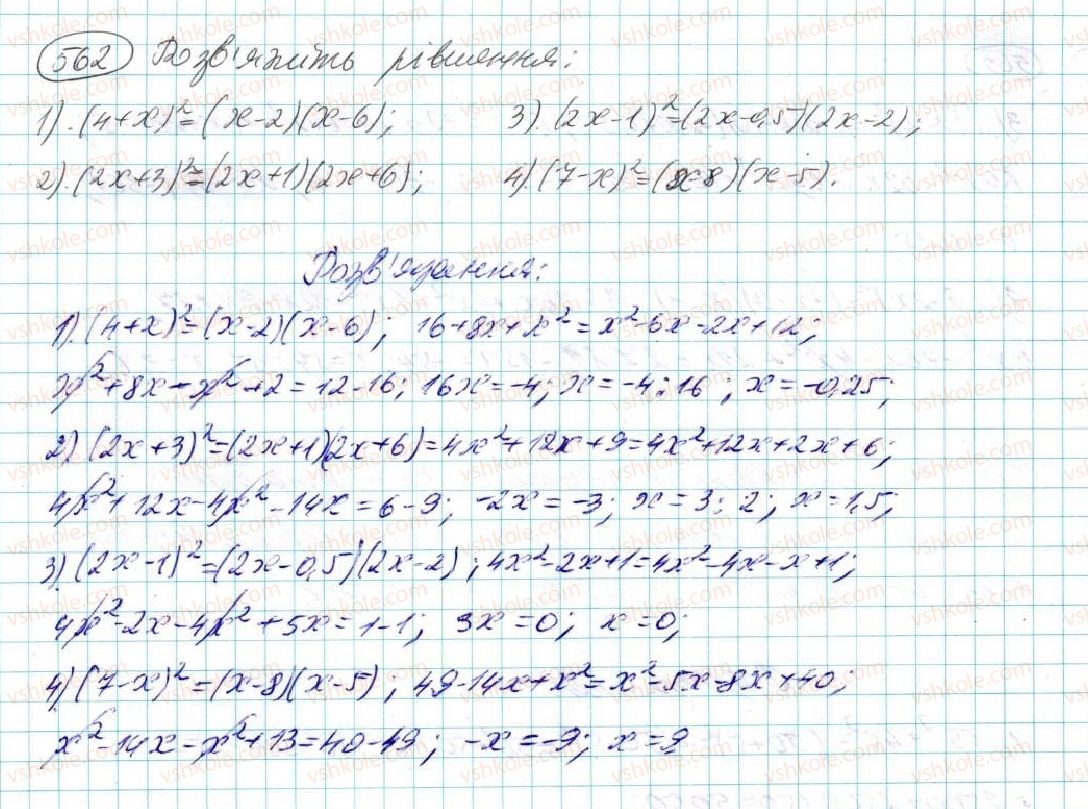 562 Розв'яжіть рівняння:
1). (4+x)²=(x-2)(x-6); 3). (2x-1)²=(2x-0,5)(2x-2);
2). (2x+3)²=(2x+1)(2x+6); 4). (7-x)²=(x-8)(x-5).
Розв'язання:
1). (4+x)²=(x-2)(x-6); 16+8x+x²=x²-6x-2x+12;
x²+8x-x²+2=12-16; 16x=-4; x=-4:16; x=-0,25;
2) (2x+3)²=(2x+1)(2x+6)=4x²+12x+9=4x²+12x+2x+6;
4x²+12x-4x²-14x=6-9; -2x=-3; x=3:2; x=1,5;
3). (2x-1)²=(2x-0,5)(2x-2); 4x²-2x+1=4x²-4x-x+1;
4x²-2x-4x²+5x=1-1; 3x=0; x=0;
4) (7-x)²=(x-8)(x-5); 49-14x+x²=x²-5x-8x+40;
x²-14x-x²+13=40-49; -x=-9; x=9
vshkole.com